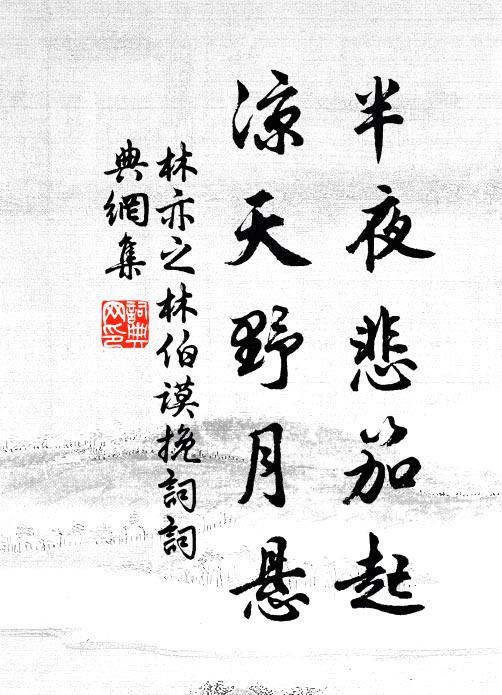 半夜悲笳起
凉天野月悬
林亦之林伯谟挽詞詞
典網集
詞典網印